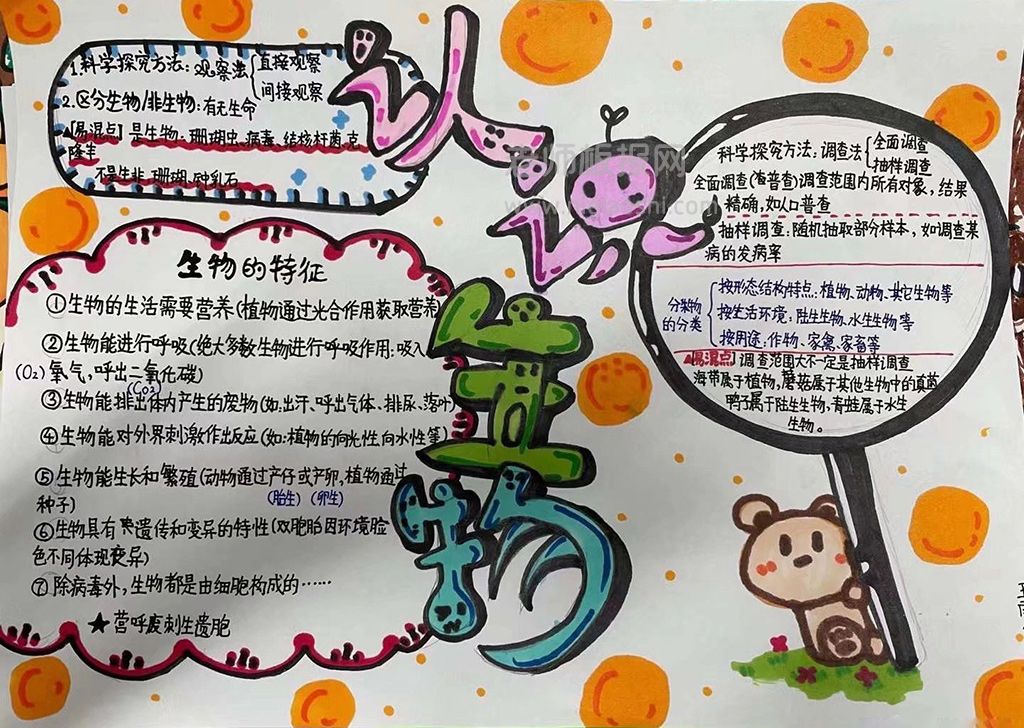 认识生物
1.科学探究方法:观察法{直接观察
间接观察
2.区分生物/非生物:有无生命
【易混点】是生物:珊瑚虫 病毒 结核杆菌 克
隆羊
不是生非 珊瑚、钟乳石
生物的特征
①生物的生活需要营养(植物通过光合作用获取营养)
②生物能进行呼吸(绝大多数生物进行呼吸作用:吸入
(O2)氧气,呼出二氧化碳)
(CO2)
③生物能排出体内产生的废物(如:出汗、呼出气体、排尿、落叶)
④生物能对外界刺激作出反应(如:植物的向光性向水性等)
⑤生物能生长和繁殖(动物通过产仔或产卵,植物通过
种子)
(胎生)(卵生)
⑥生物具有遗传和变异的特性(双胞胎因环境脸
色不同体现变异)
⑦除病毒外,生物都是由细胞构成的……
★营呼废刺生遗胞
科学探究方法:调查法{全面调查
抽样调查
全面调查(查普查)调查范围内所有对象,结果
精确,如人口普查
抽样调查:随机抽取部分样本,如调查某
病的发病率
分类物的分类{按形态结构特点:植物、动物、其它生物等
按生活环境:陆生生物、水生生物等
按用途:作物、家禽、家畜等
【易混点】调查范围大不一定是抽样调查
海带属于植物,蘑菇属于其他生物中的真菌
鸭子属于陆生生物,青蛙属于水生
生物。
老师板报网